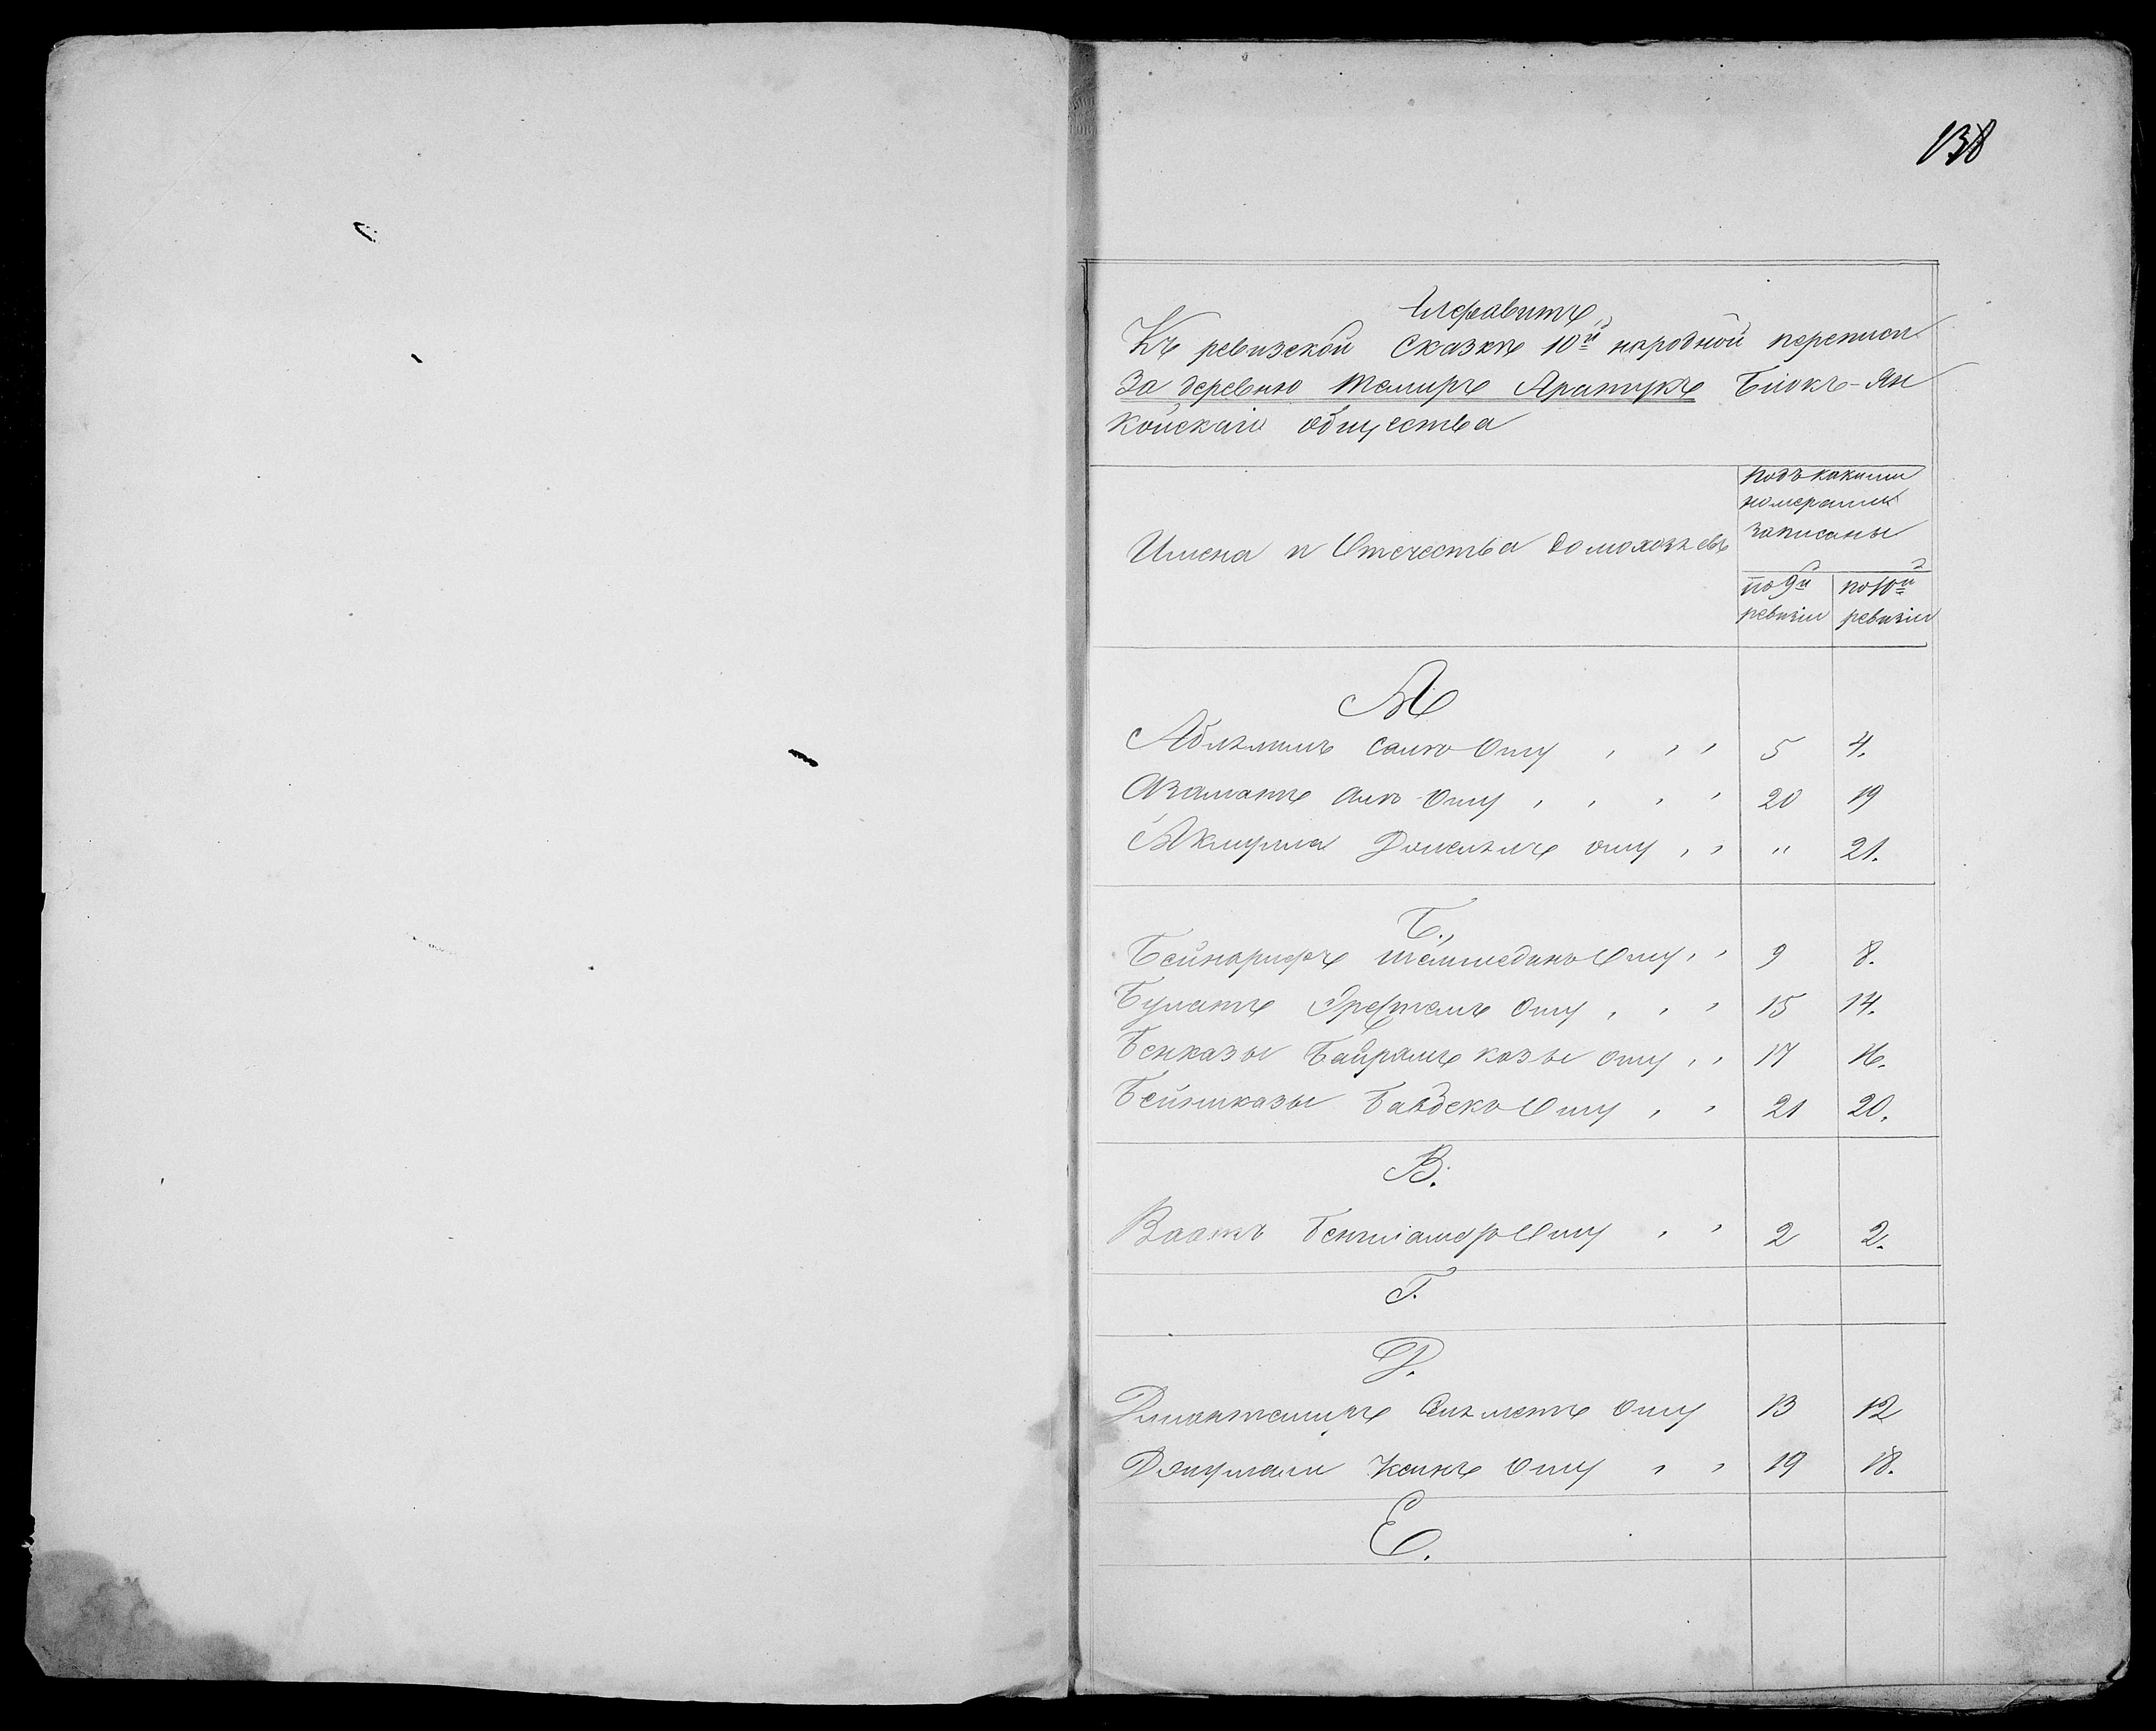 138
Алфавитъ
Къ ревизской Сказкѣ 10й народной переписи
За деревню Темиръ Аратукъ Біюкъ-Ян
койскаго общества
Имена и Отечества домохозяевъ
подъ какими
номерами
записаны
по 9й
ревизіи
по 10й
ревизіи
А
Аблязимъ Оглу , , , 5 4.
Азаматъ Али Оглу , , , , 20 19
Акмулла оглу , , " 21.
Б.
Бейнарифъ Шемшединъ Оглу , , 9 8.
Булатъ Оглу , , , 15 14.
Бенказы Байрамъ казы оглу , , 17 16.
Оглу , , 21 20.
В.
Ваапъ Оглу , , 2 2.
Г.
Д.
Джантемиръ Сеяметъ Оглу 13 12
Джумали Оглу , , 19 18.
Е.